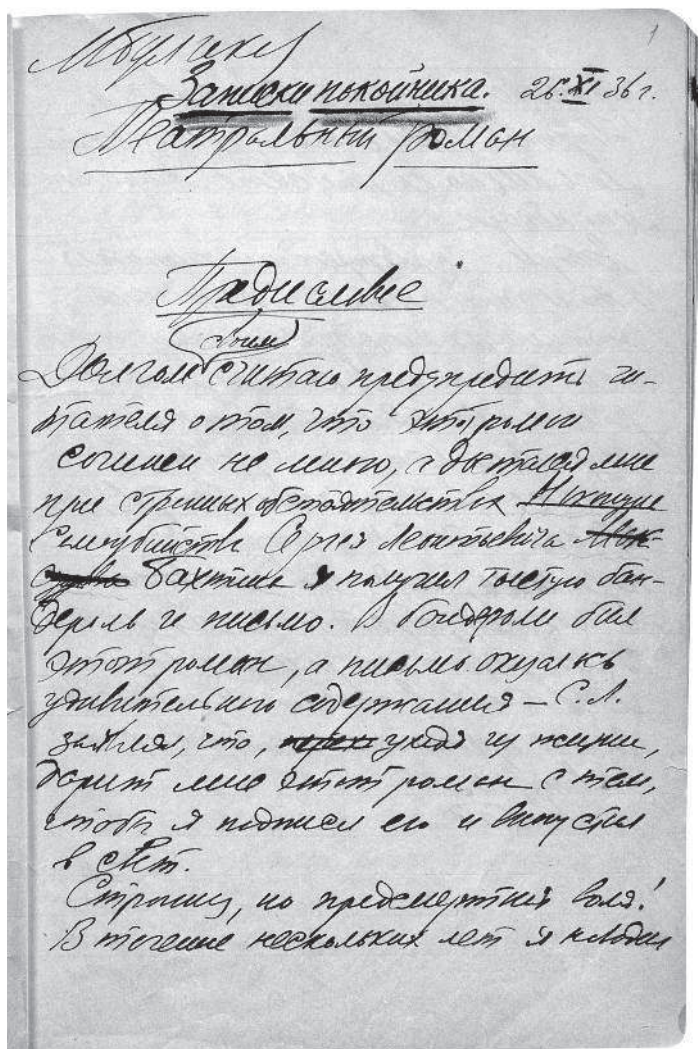 1
М Булгаков
Записки покойника. 26.XI 36 г.
Театральный роман
Предисловие
своим
Долгом считаю предупредить чи-
тателя о том, что этот роман
сочинен не мною, а достался мне
при странных обстоятельствах. Накануне
самоубийства Сергея Леонтьевича
Бахтина я получил толстую бан-
дероль и письмо. В бандероли был
этот роман, а письмо оказалось
удивительного содержания – С. Л.
заявлял, что, уходя из жизни,
дарит мне этот роман с тем,
чтобы я подписал его и выпустил
в свет.
Странная, но предсмертная воля!
В течение нескольких лет я наводил